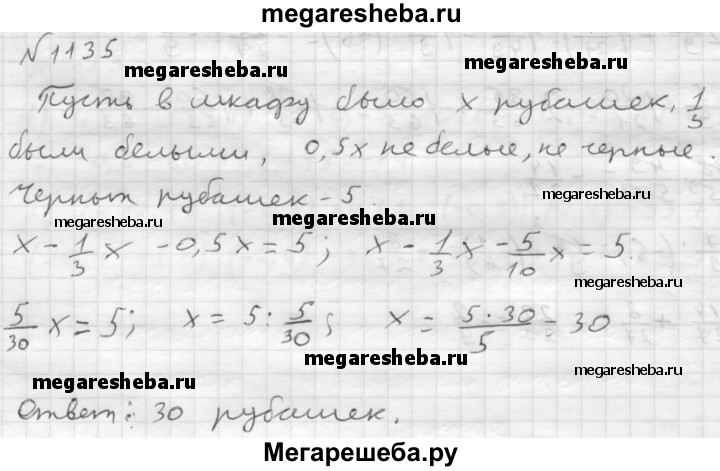 megaresheba.ru
№1135
megaresheba.ru
megaresheba.ru
Пусть в шкафу было x рубашек, 1/3
были белыми, 0,5x не белые, не черные.
Черных рубашек - 5
megaresheba.ru
megaresheba.ru
megaresheba.ru
x - 1/3 x - 0,5x = 5; x - 1/3 x - 5/10 x = 5.
megaresheba.ru
5/30 x = 5; x = 5 : 5/30; x = 5·30/5 = 30
megaresheba.ru
megaresheba.ru
Ответ: 30 рубашек.
Мегарешеба.ру